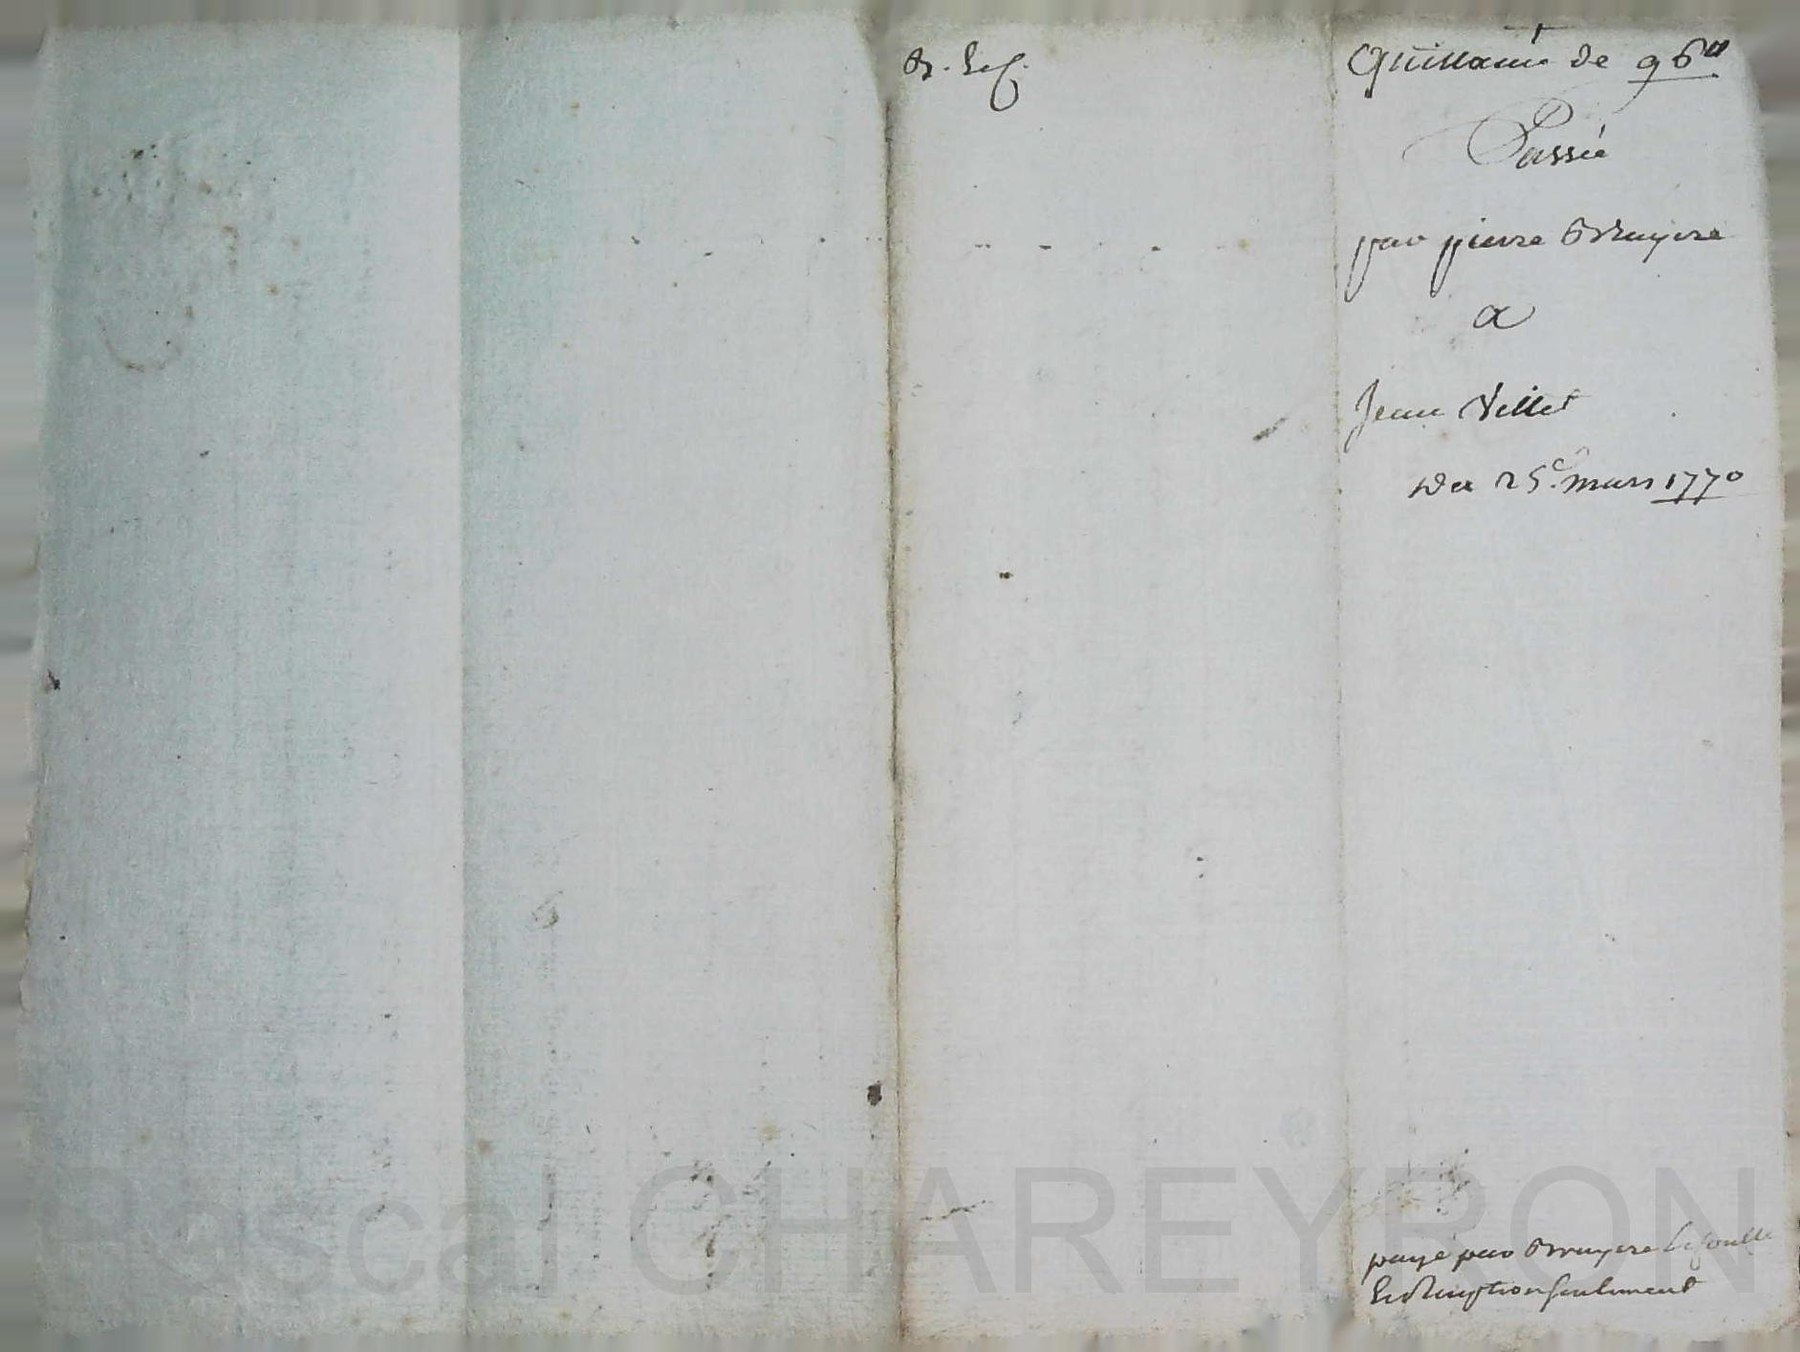 Quittance de 96ll
Passée
par pierre Bruyere
a
Jean Villet
Du 25e. mars 1770
payé par Bruyere
seulement
Pascal CHAREYRON